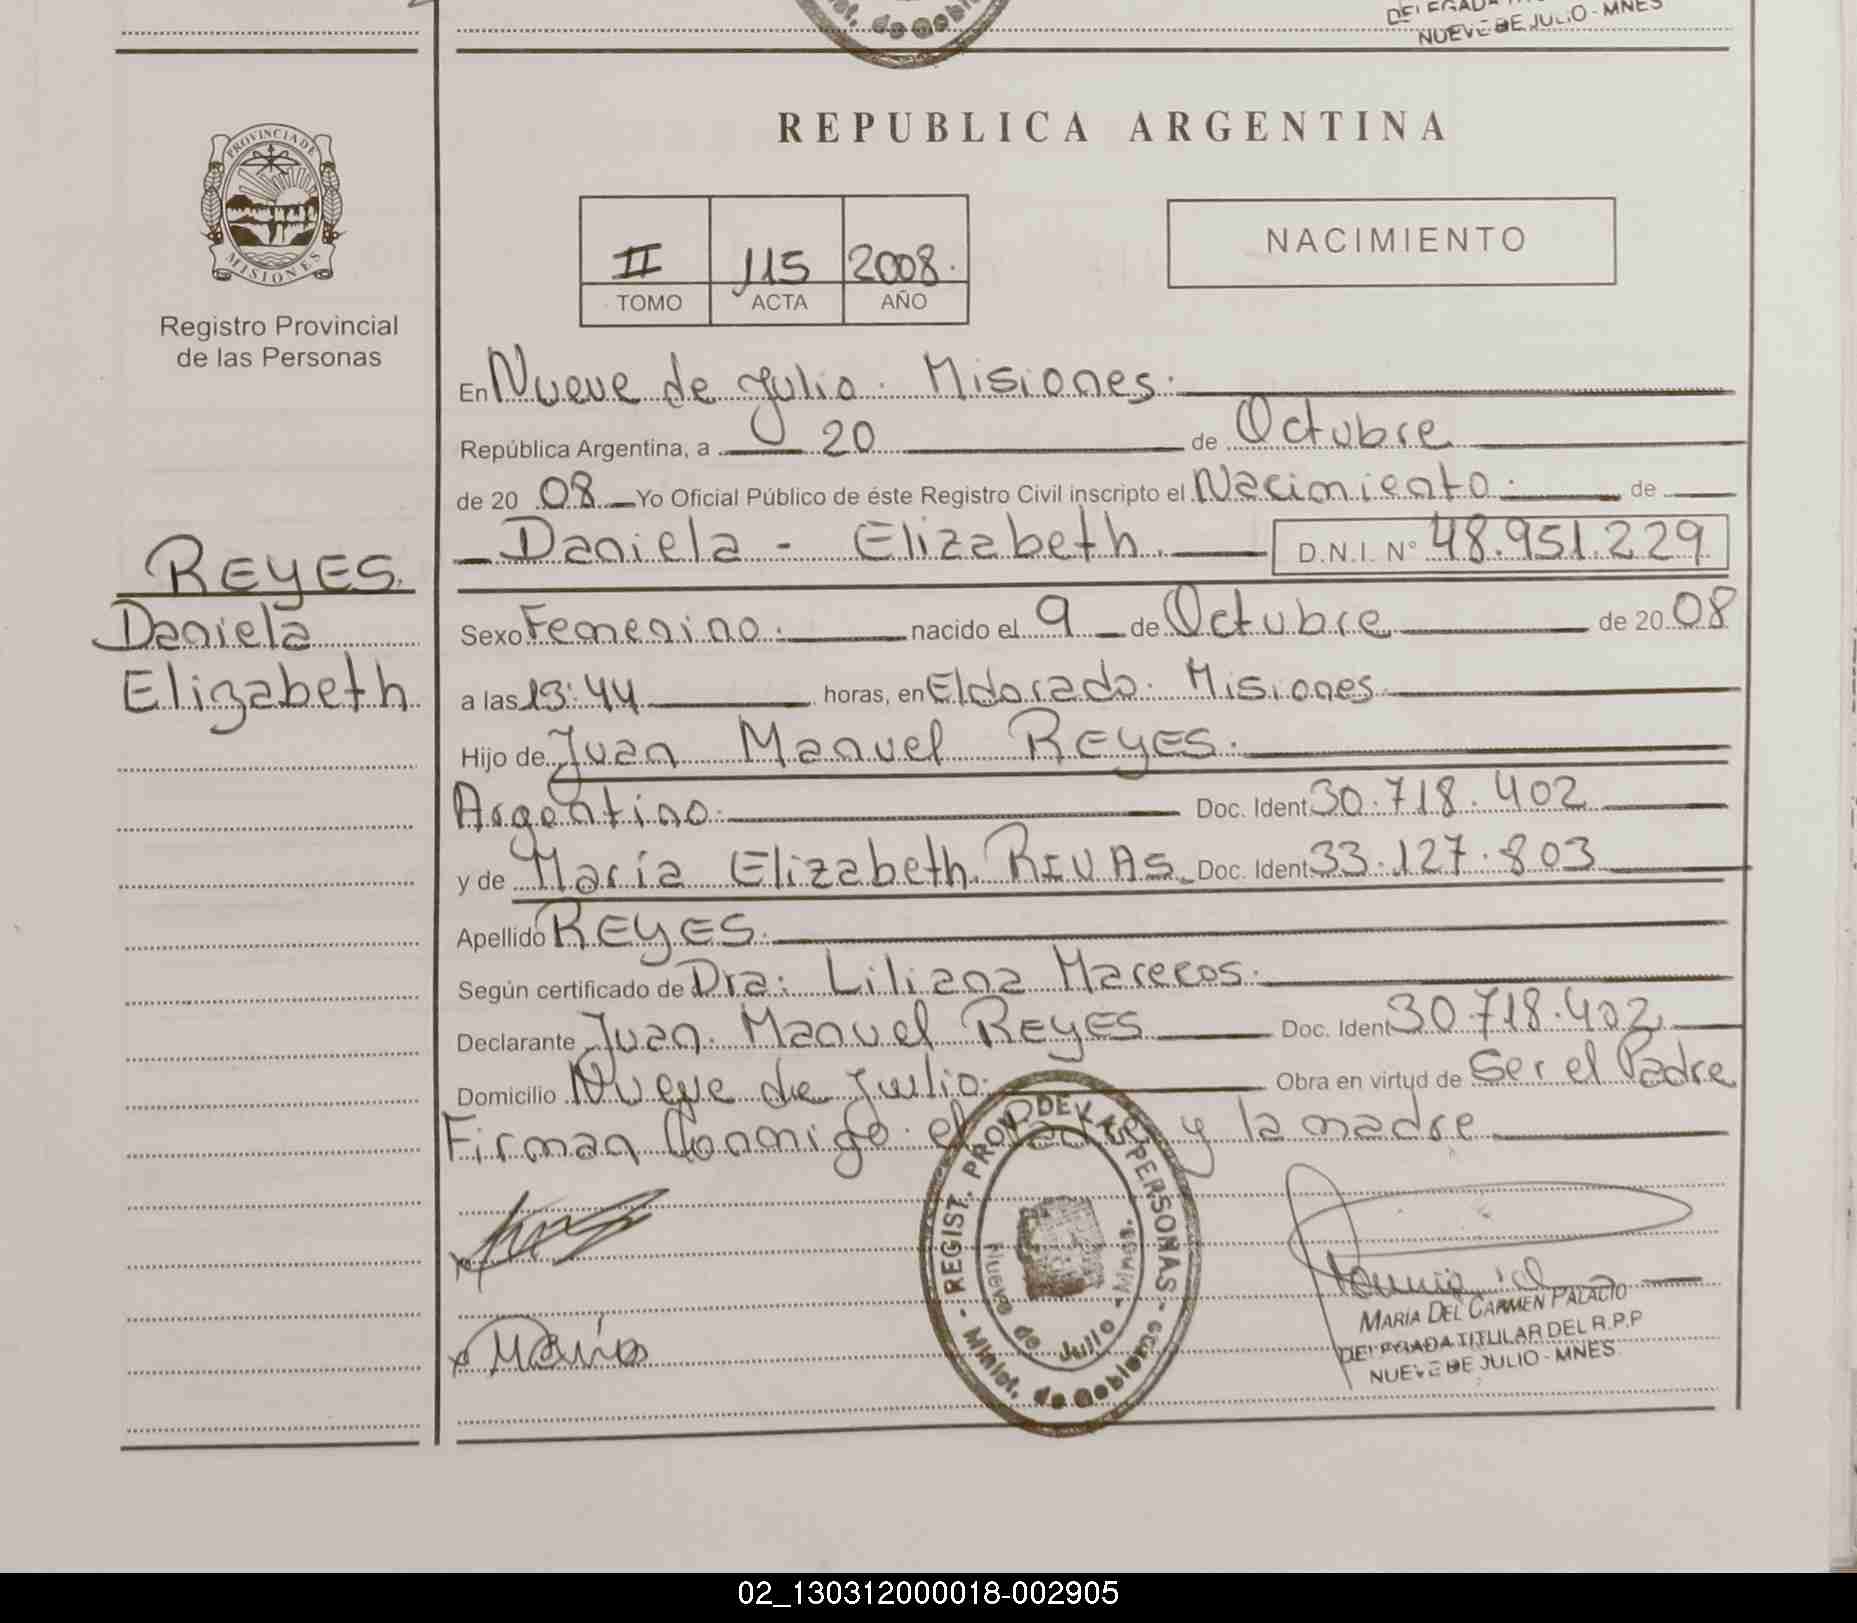 NUEVE DE JULIO - MNES
REPUBLICA ARGENTINA
PROVINCIA DE
MISIONES
Registro Provincial
de las Personas
II 115 2008.
TOMO ACTA AÑO
NACIMIENTO
En Nueve de Julio. Misiones.
República Argentina, a 20 de Octubre
de 20 08 Yo Oficial Público de éste Registro Civil inscripto el Nacimiento. de
Daniela - Elizabeth. D.N.I. N° 48.951.229
REYES.
Daniela
Elizabeth
Sexo Femenino. nacido el 9 de Octubre de 20 08
a las 13:44 horas, en Eldorado. Misiones
Hijo de Juan Manuel REYES.
Argentino. Doc. Ident 30.718.402
y de María Elizabeth RIVAS Doc. Ident 33.127.803
Apellido REYES.
Según certificado de Dra: Liliana Marecos.
Declarante Juan Manuel REYES Doc. Iden 30.718.402
Domicilio Nueve de Julio. Obra en virtud de Ser el Padre
Firman Conmigo el Padre y la madre
REGIST. PROV. DE LAS PERSONAS
Minist. de Gobierno
Nueve de Julio - Mnes.
María
MARIA DEL CARMEN PALACIO
DELEGADA TITULAR DEL R.P.P
NUEVE DE JULIO - MNES.
02_130312000018-002905